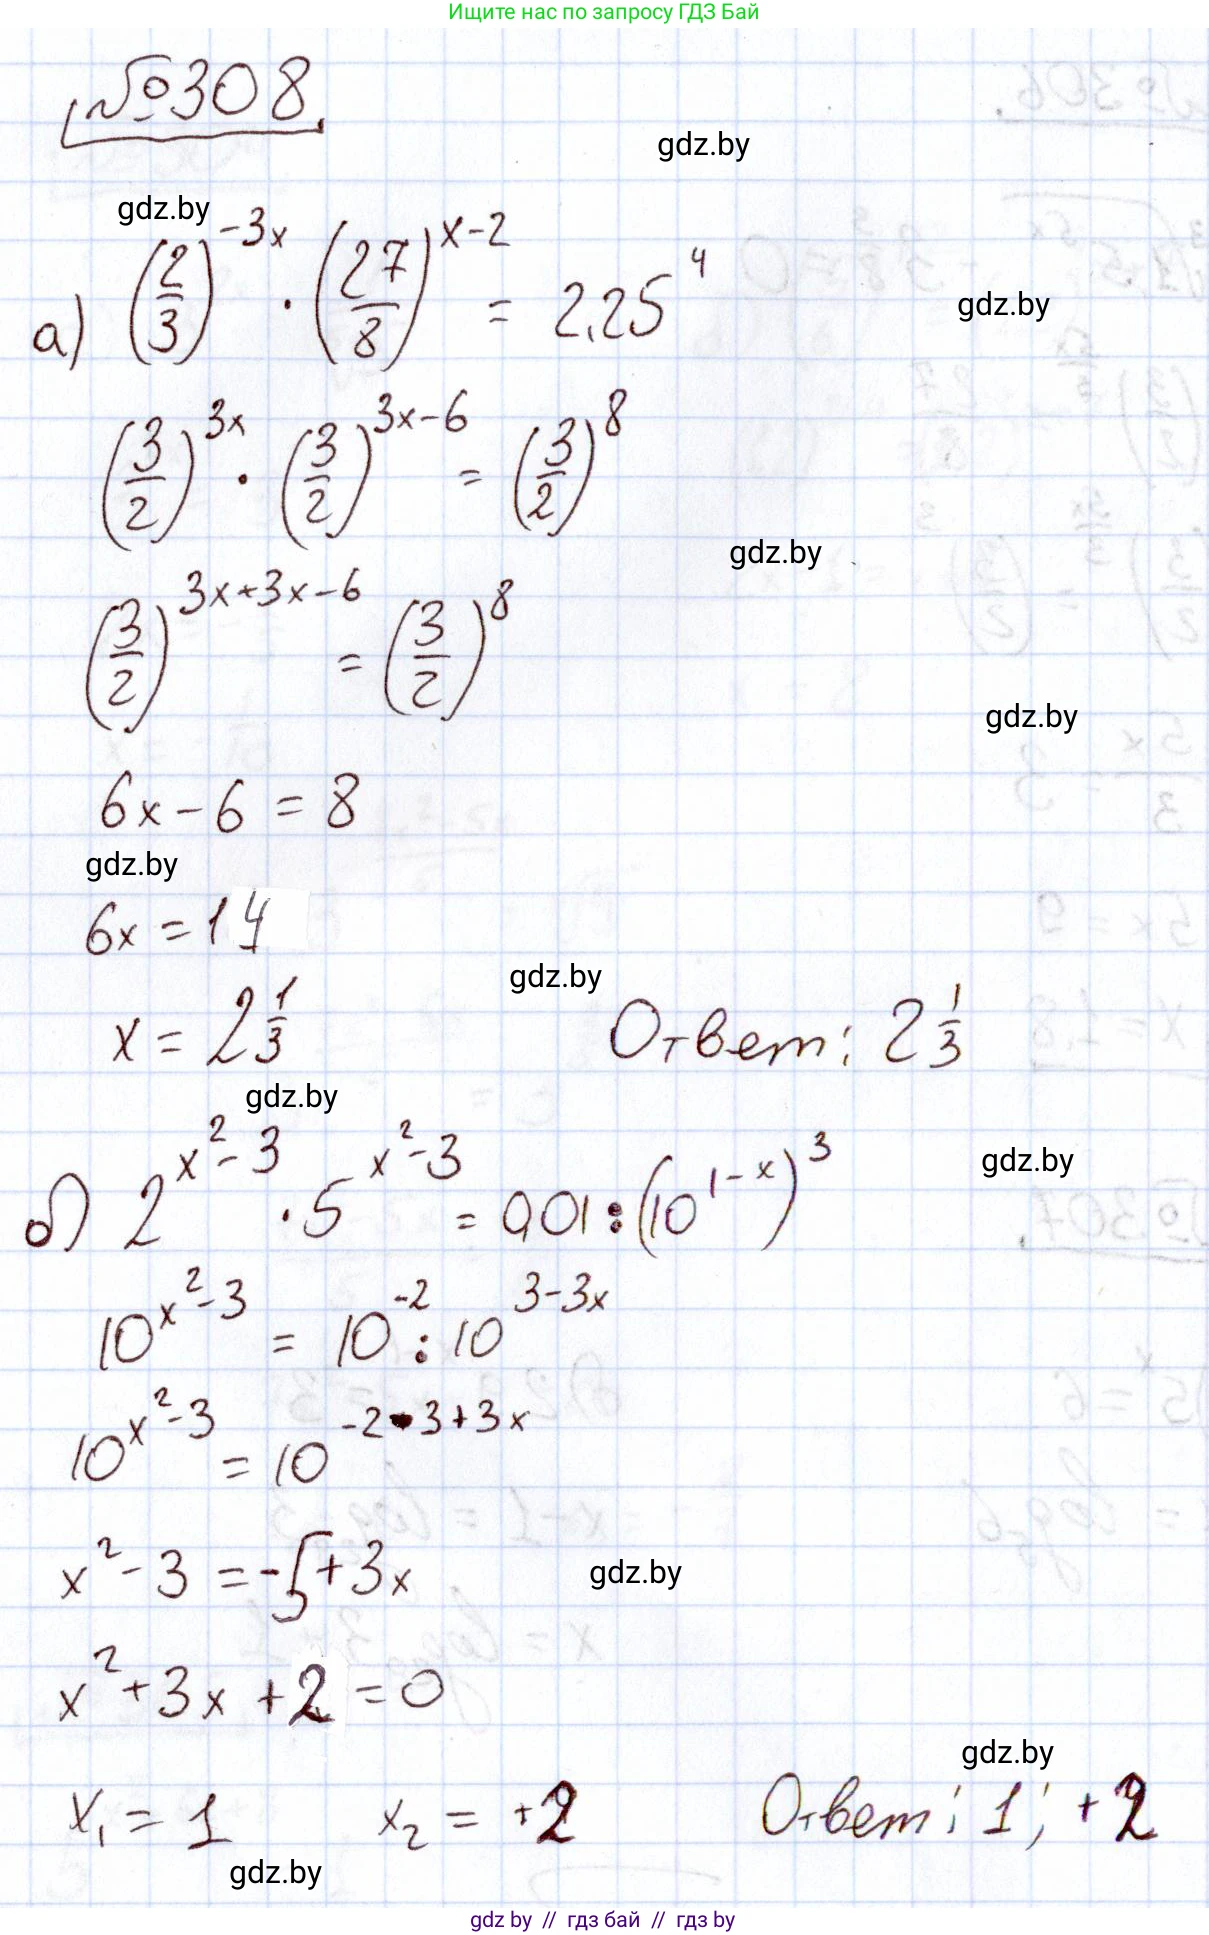 Ищите нас по запросу ГДЗ Бай
№308.
gdz.by
gdz.by
а) (2/3)^(-3x) · (27/8)^(x-2) = 2,25^4
gdz.by
(3/2)^(3x) · (3/2)^(3x-6) = (3/2)^8
gdz.by
(3/2)^(3x+3x-6) = (3/2)^8
gdz.by
6x - 6 = 8
gdz.by
6x = 14
gdz.by
x = 2 1/3 Ответ: 2 1/3
gdz.by
gdz.by
б) 2^(x²-3) · 5^(x²-3) = 0,01 : (10^(1-x))^3
10^(x²-3) = 10^(-2) : 10^(3-3x)
10^(x²-3) = 10^(-2-3+3x)
x² - 3 = -5 + 3x
gdz.by
x² + 3x + 2 = 0
gdz.by
x₁ = 1 x₂ = +2 Ответ: 1; +2
gdz.by
gdz by // гдз бай // гдз by